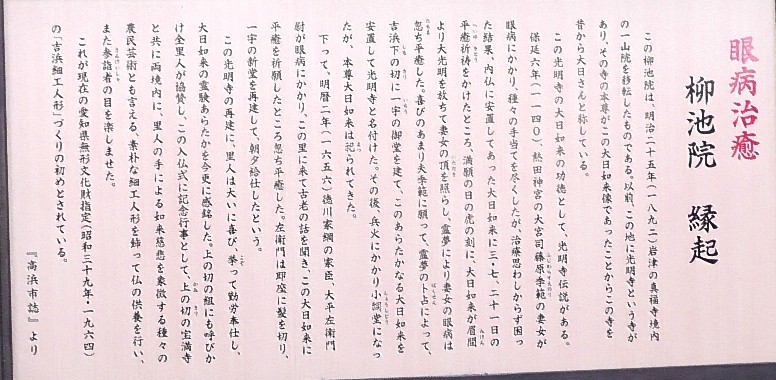 眼病治癒
柳池院　縁起
この柳池院は、明治二十五年(一八九二)岩津の真福寺境内
の一山院を移転したものである。以前、この地に光明寺という寺が
あり、その寺の本尊がこの大日如来像であったことからこの寺を
昔から大日さんと称している。
この光明寺の大日如来の功徳として、光明寺伝説がある。
保延六年(一一四〇)、熱田神宮の大宮司藤原季範の妻女が
眼病にかかり、種々の手当てを尽くしたが、治療思わしからず困っ
た結果、内仏に安置してあった大日如来に三・七、二十一日の
平癒祈祷をかけたところ、満願の日の虎の刻に、大日如来が眉間
より大光明を放ちて妻女の頂を照らし、霊夢により妻女の眼病は
忽ち平癒した。喜びのあまり夫季範に願って、霊夢の卜占によって、
吉浜下の切に一宇の御堂を建て、このあらたかなる大日如来を
安置して光明寺と名付けた。その後、兵火にかかり小祠堂になっ
たが、本尊大日如来は祀られてきた。
下って、明暦二年(一六五六)徳川家綱の家臣、大平左衛門
尉が眼病にかかり、この里に来て古老の話を聞き、この大日如来に
平癒を祈願したところ忽ち平癒した。左衛門は即座に髪を切り、
一宇の新堂を再建して、朝夕給仕したという。
この光明寺の再建に、里人は大いに喜び、挙って勤労奉仕し、
大日如来の霊験あらたかを今更に感銘した。上の切の組にも呼びか
け全里人が協賛し、この入仏式に記念行事として、上の切の宝満寺
と共に両境内に、里人の手による如来慈悲を象徴する種々の
農民芸術とも言える、素朴な細工人形を飾って仏の供養を行い、
また参詣者の目を楽しませた。
これが現在の愛知県無形文化財指定(昭和三十九年・一九六四)
の「吉浜細工人形」づくりの初めとされている。
『高浜市誌』より